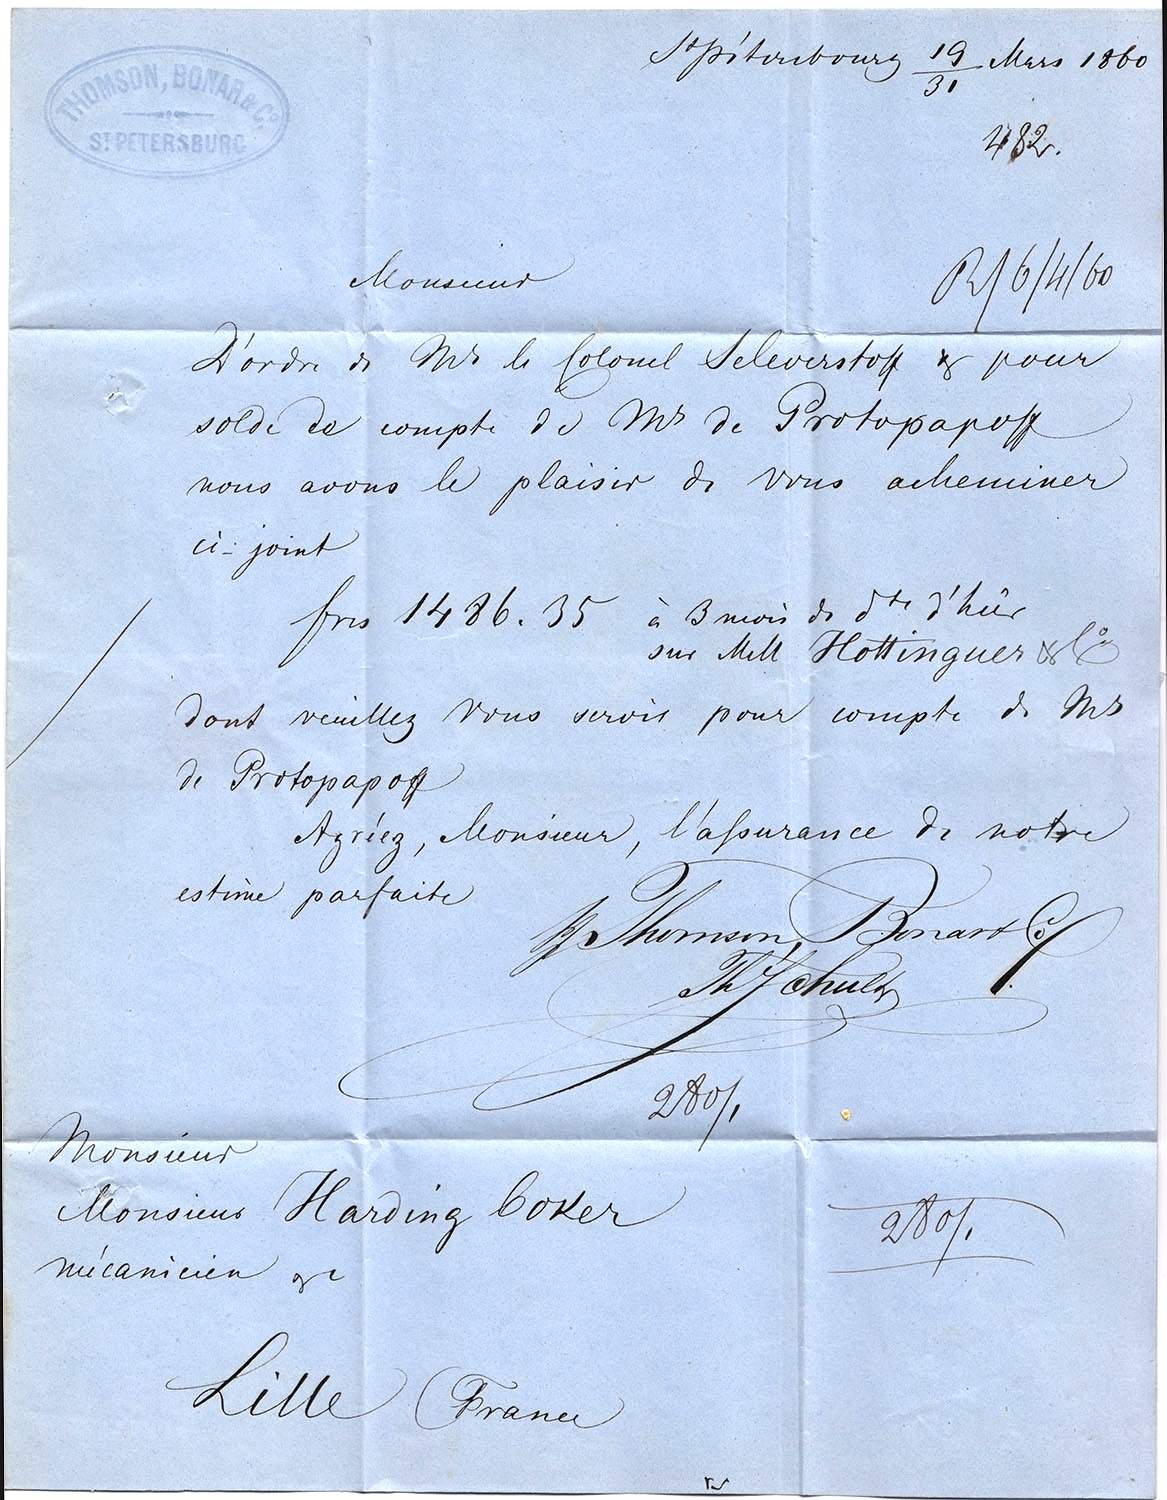 THOMSON, BONAR & Co.
ST PETERSBURG
St Pétersbourg 19/31 Mars 1860
482.
R/ 6/4/60
Monsieur
D'ordre de Mr le Colonel Seleverstoff & pour
solde de compte de Mr de Protopapoff
nous avons le plaisir de vous acheminer
ci-joint
frcs 1486.35 à 3 mois de dte d'hûi
sur MM Hottinguer & Co
dont veuillez vous servir pour compte de Mr
de Protopapoff
Agréez, Monsieur, l'assurance de notre
estime parfaite
pp Thomson, Bonar & Co
Th Schultz
280/.
Monsieur
Monsieur Harding Coker
mécanicien &c
280/.
Lille (France